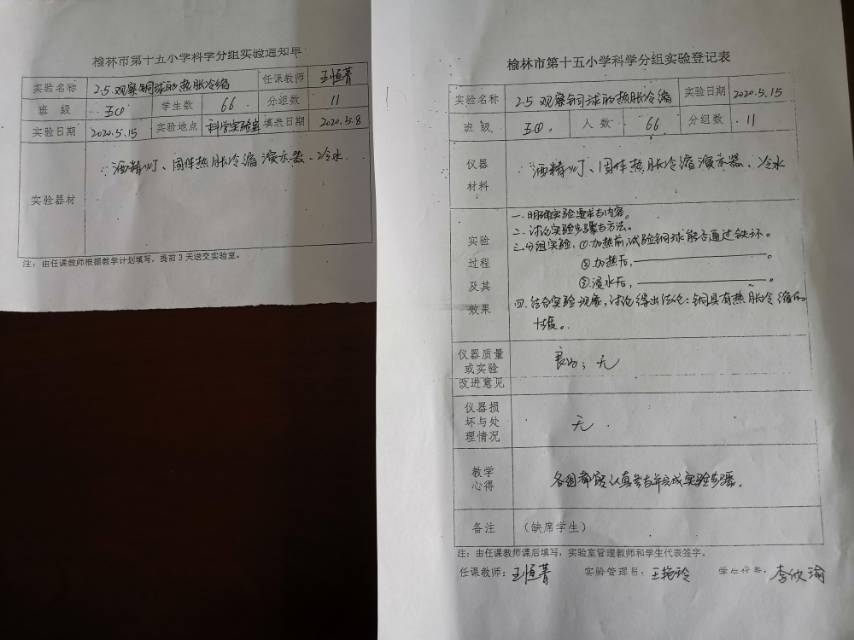 榆林市第十五小学科学分组实验通知单
实验名称 2.5 观察铜球的热胀冷缩 任课教师 王恒菁
班 级 五(4) 学生数 66 分组数 11
实验日期 2020.5.15 实验地点 科学实验室 填表日期 2020.5.8
实验器材 酒精灯、固体热胀冷缩演示器、冷水
注：由任课教师根据教学计划填写，提前3天送交实验室。
榆林市第十五小学科学分组实验登记表
实验名称 2.5 观察铜球的热胀冷缩 实验日期 2020.5.15
班 级 五(4) 人 数 66 分组数 11
仪器
材料
酒精灯、固体热胀冷缩演示器、冷水
实验
过程
及其
效果
一.明确实验要求与内容。
二.讨论实验步骤与方法。
三.分组实验，①加热前，试验铜球能否通过铁环。
②加热后，————。
③浸水后，————。
四.结合实验现象，讨论得出结论：铜具有热胀冷缩的
性质。
仪器质量
或实验
改进意见
良好；无
仪器损
坏与处
理情况
无
教学
心得
各组都能认真参与并完成实验步骤.
备注 （缺席学生）
注：由任课教师课后填写，实验室管理教师和学生代表签字。
任课教师：王恒菁 实验管理员：王艳玲 学生代表：李欣瑜